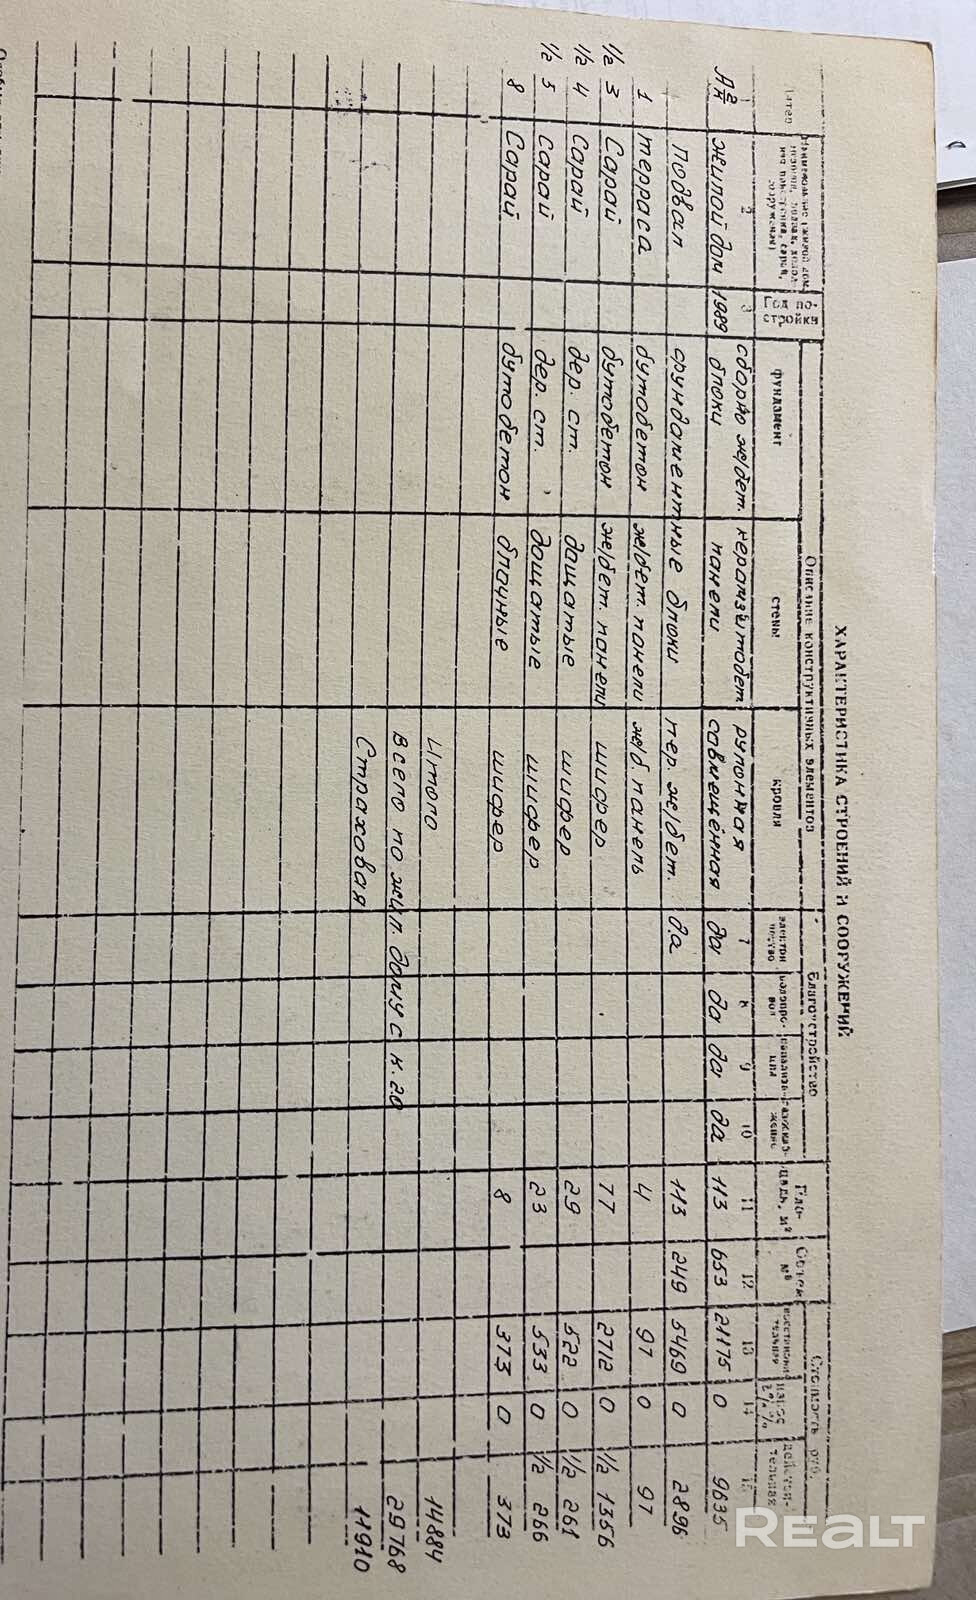 ХАРАКТЕРИСТИКА СТРОЕНИЙ И СООРУЖЕНИЙ
Литер
Наименование (жилой дом,
сарай,
сооружения)
Год по-
стройки
Описание конструктивных элементов
фундамент
стены
кровли
Благоустройство
Пло-
щадь, м²
Объем
м³
Стоимость руб.
износ
2 3 7 8 9 10 11 12 13 14 15
А 2/к жилой дом 1989 сборно ж/бет. керамзитобет. рулонная да да да да 113 653 21175 0 9635
блоки панели совмещённая
Подвал фундаментные блоки пер. ж/бет. да 113 249 5469 0 2896
1 терраса бутобетон ж/бет. панели ж/б. панель 4 97 0 97
1/2 3 Сарай бутобетон ж/бет. панели шифер 77 2712 0 1/2 1356
1/2 4 Сарай дер. ст. дощатые шифер 29 522 0 1/2 261
1/2 5 Сарай дер. ст. дощатые шифер 23 533 0 1/2 266
8 Сарай бутобетон блочные шифер 8 373 0 373
Итого 14884
Всего по жил. дому с к.2.0 29768
Страховая 11910
REALT